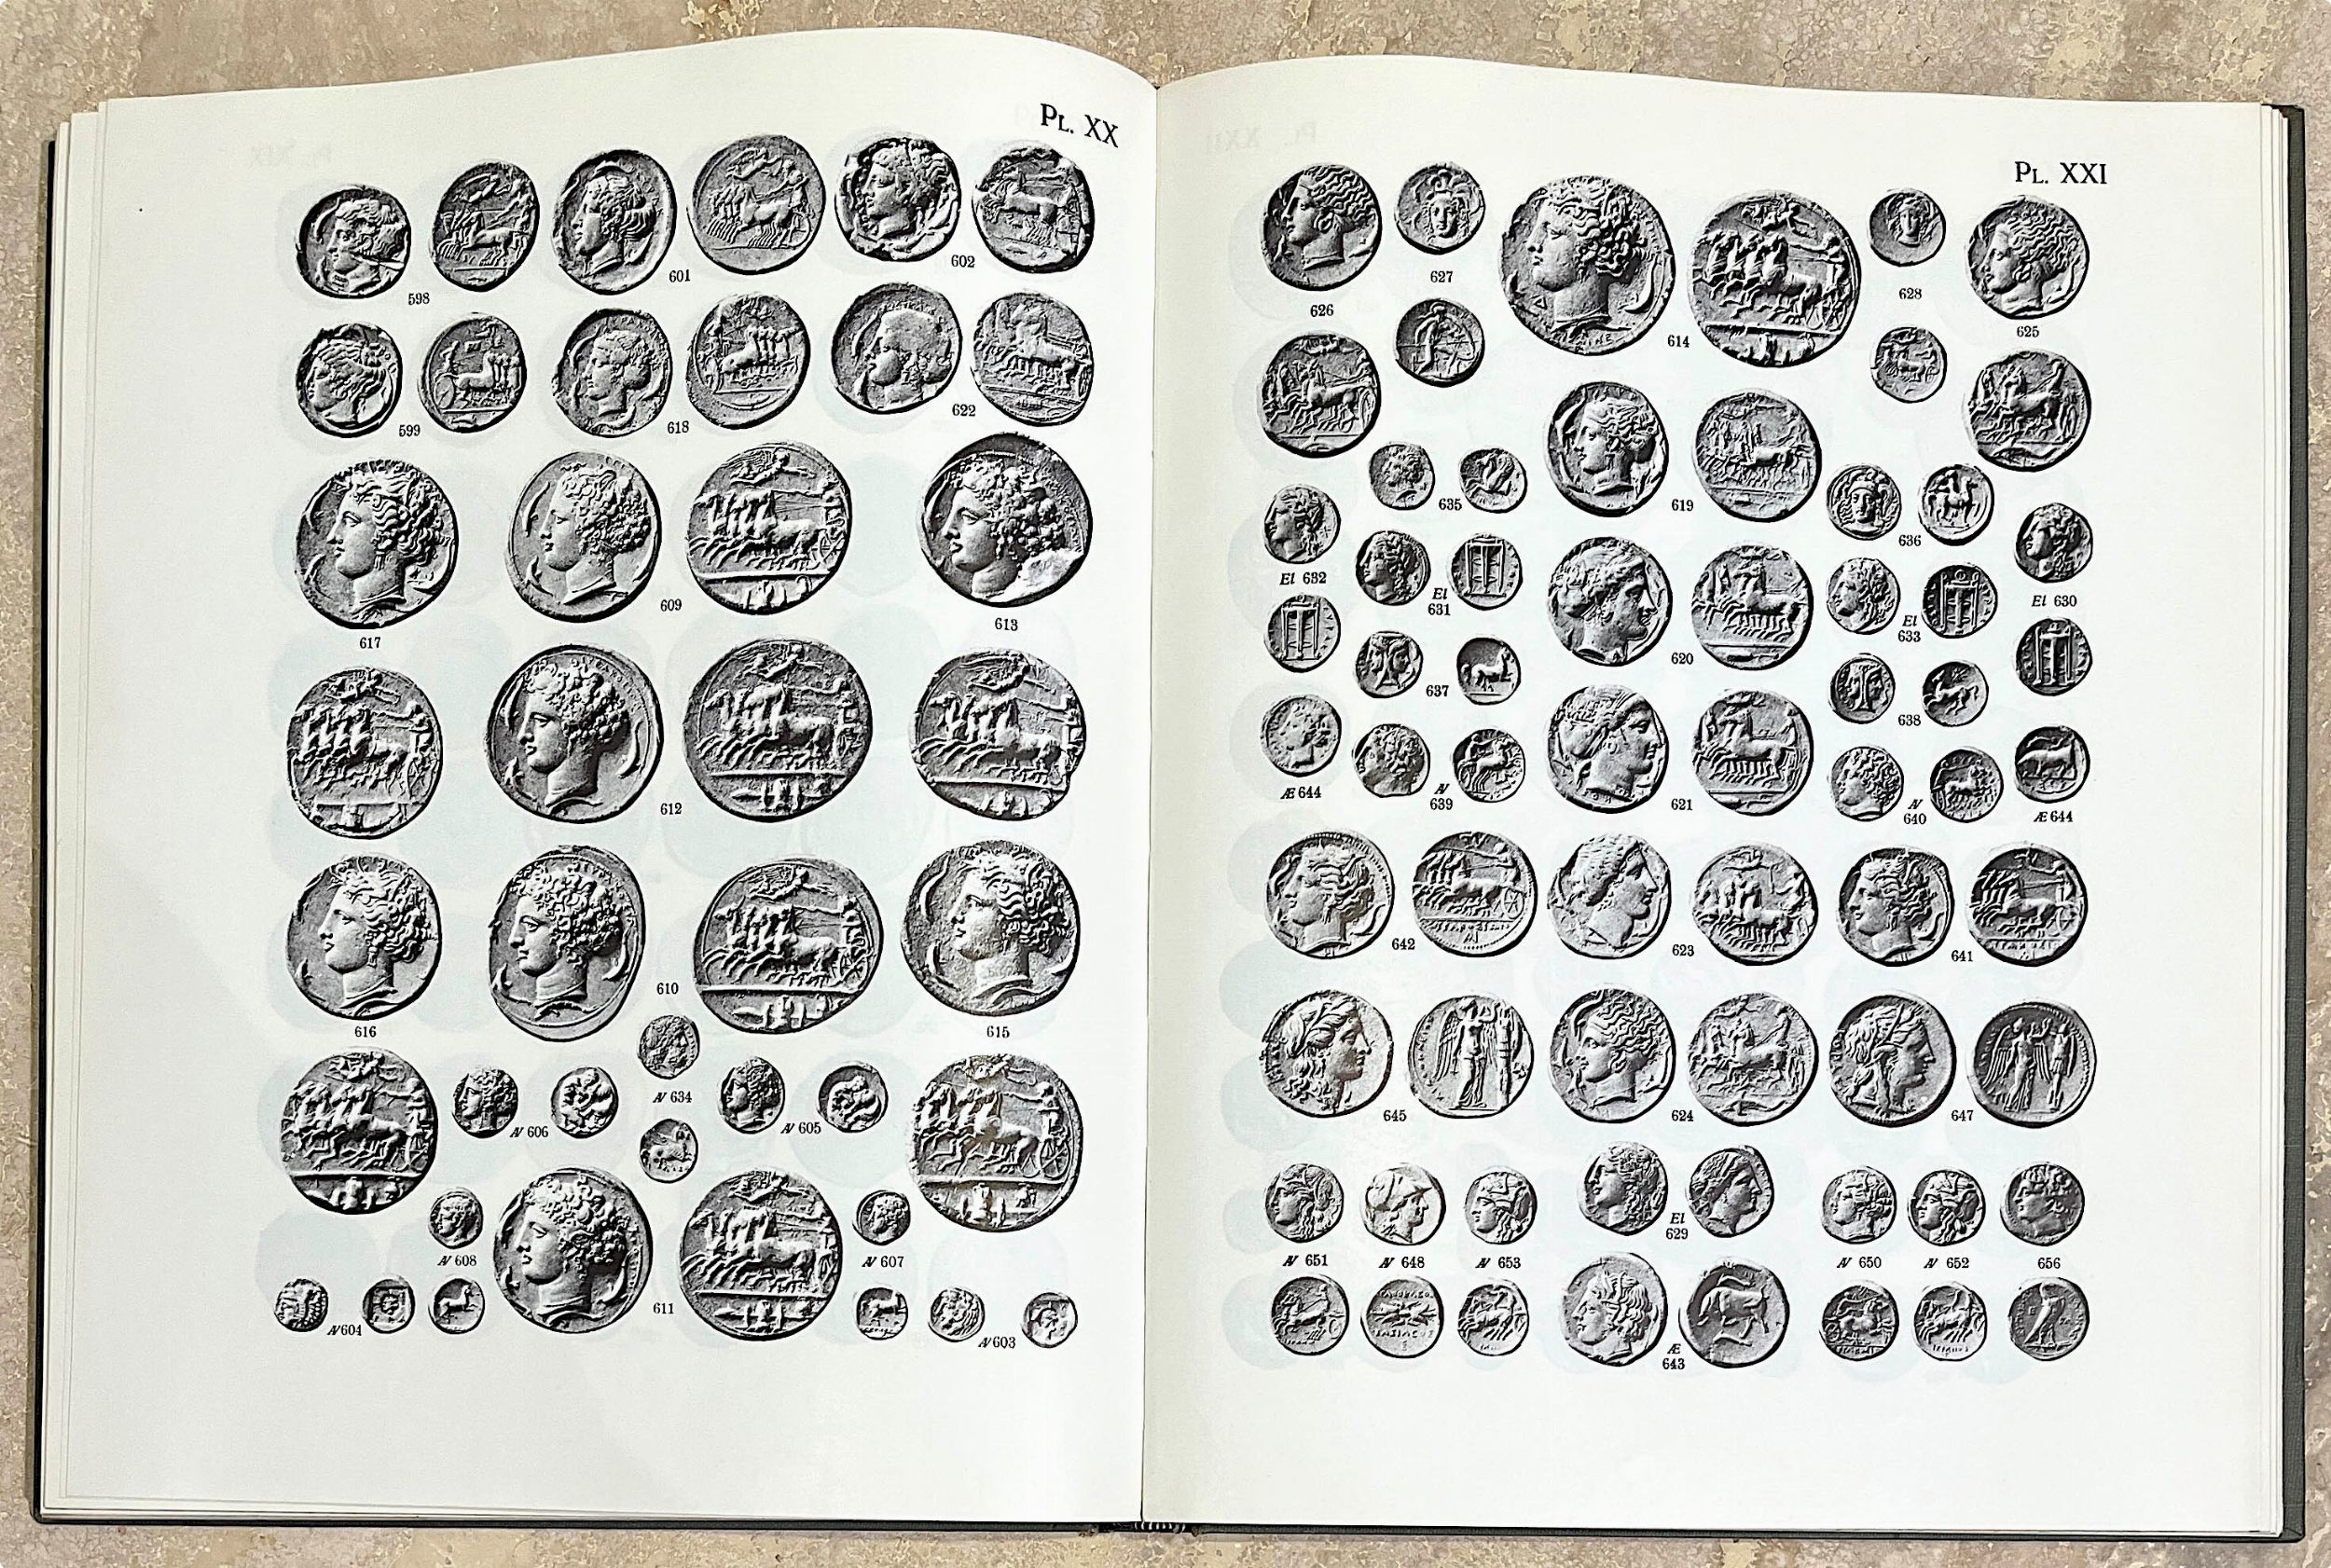 PL. XX
601
602
598
622
618
599
609
613
617
612
610
616
615
AV 634
AV 606
AV 605
AV 608
AV 607
611
AV 604
AV 603
PL. XXI
627
628
626
625
614
635
619
636
El 632
El
631
El
633
El 630
620
637
638
Æ 644
AV
639
621
AV
640
Æ 644
642
623
641
645
624
647
El
629
AV 651
AV 648
AV 653
AV 650
AV 652
656
Æ
643